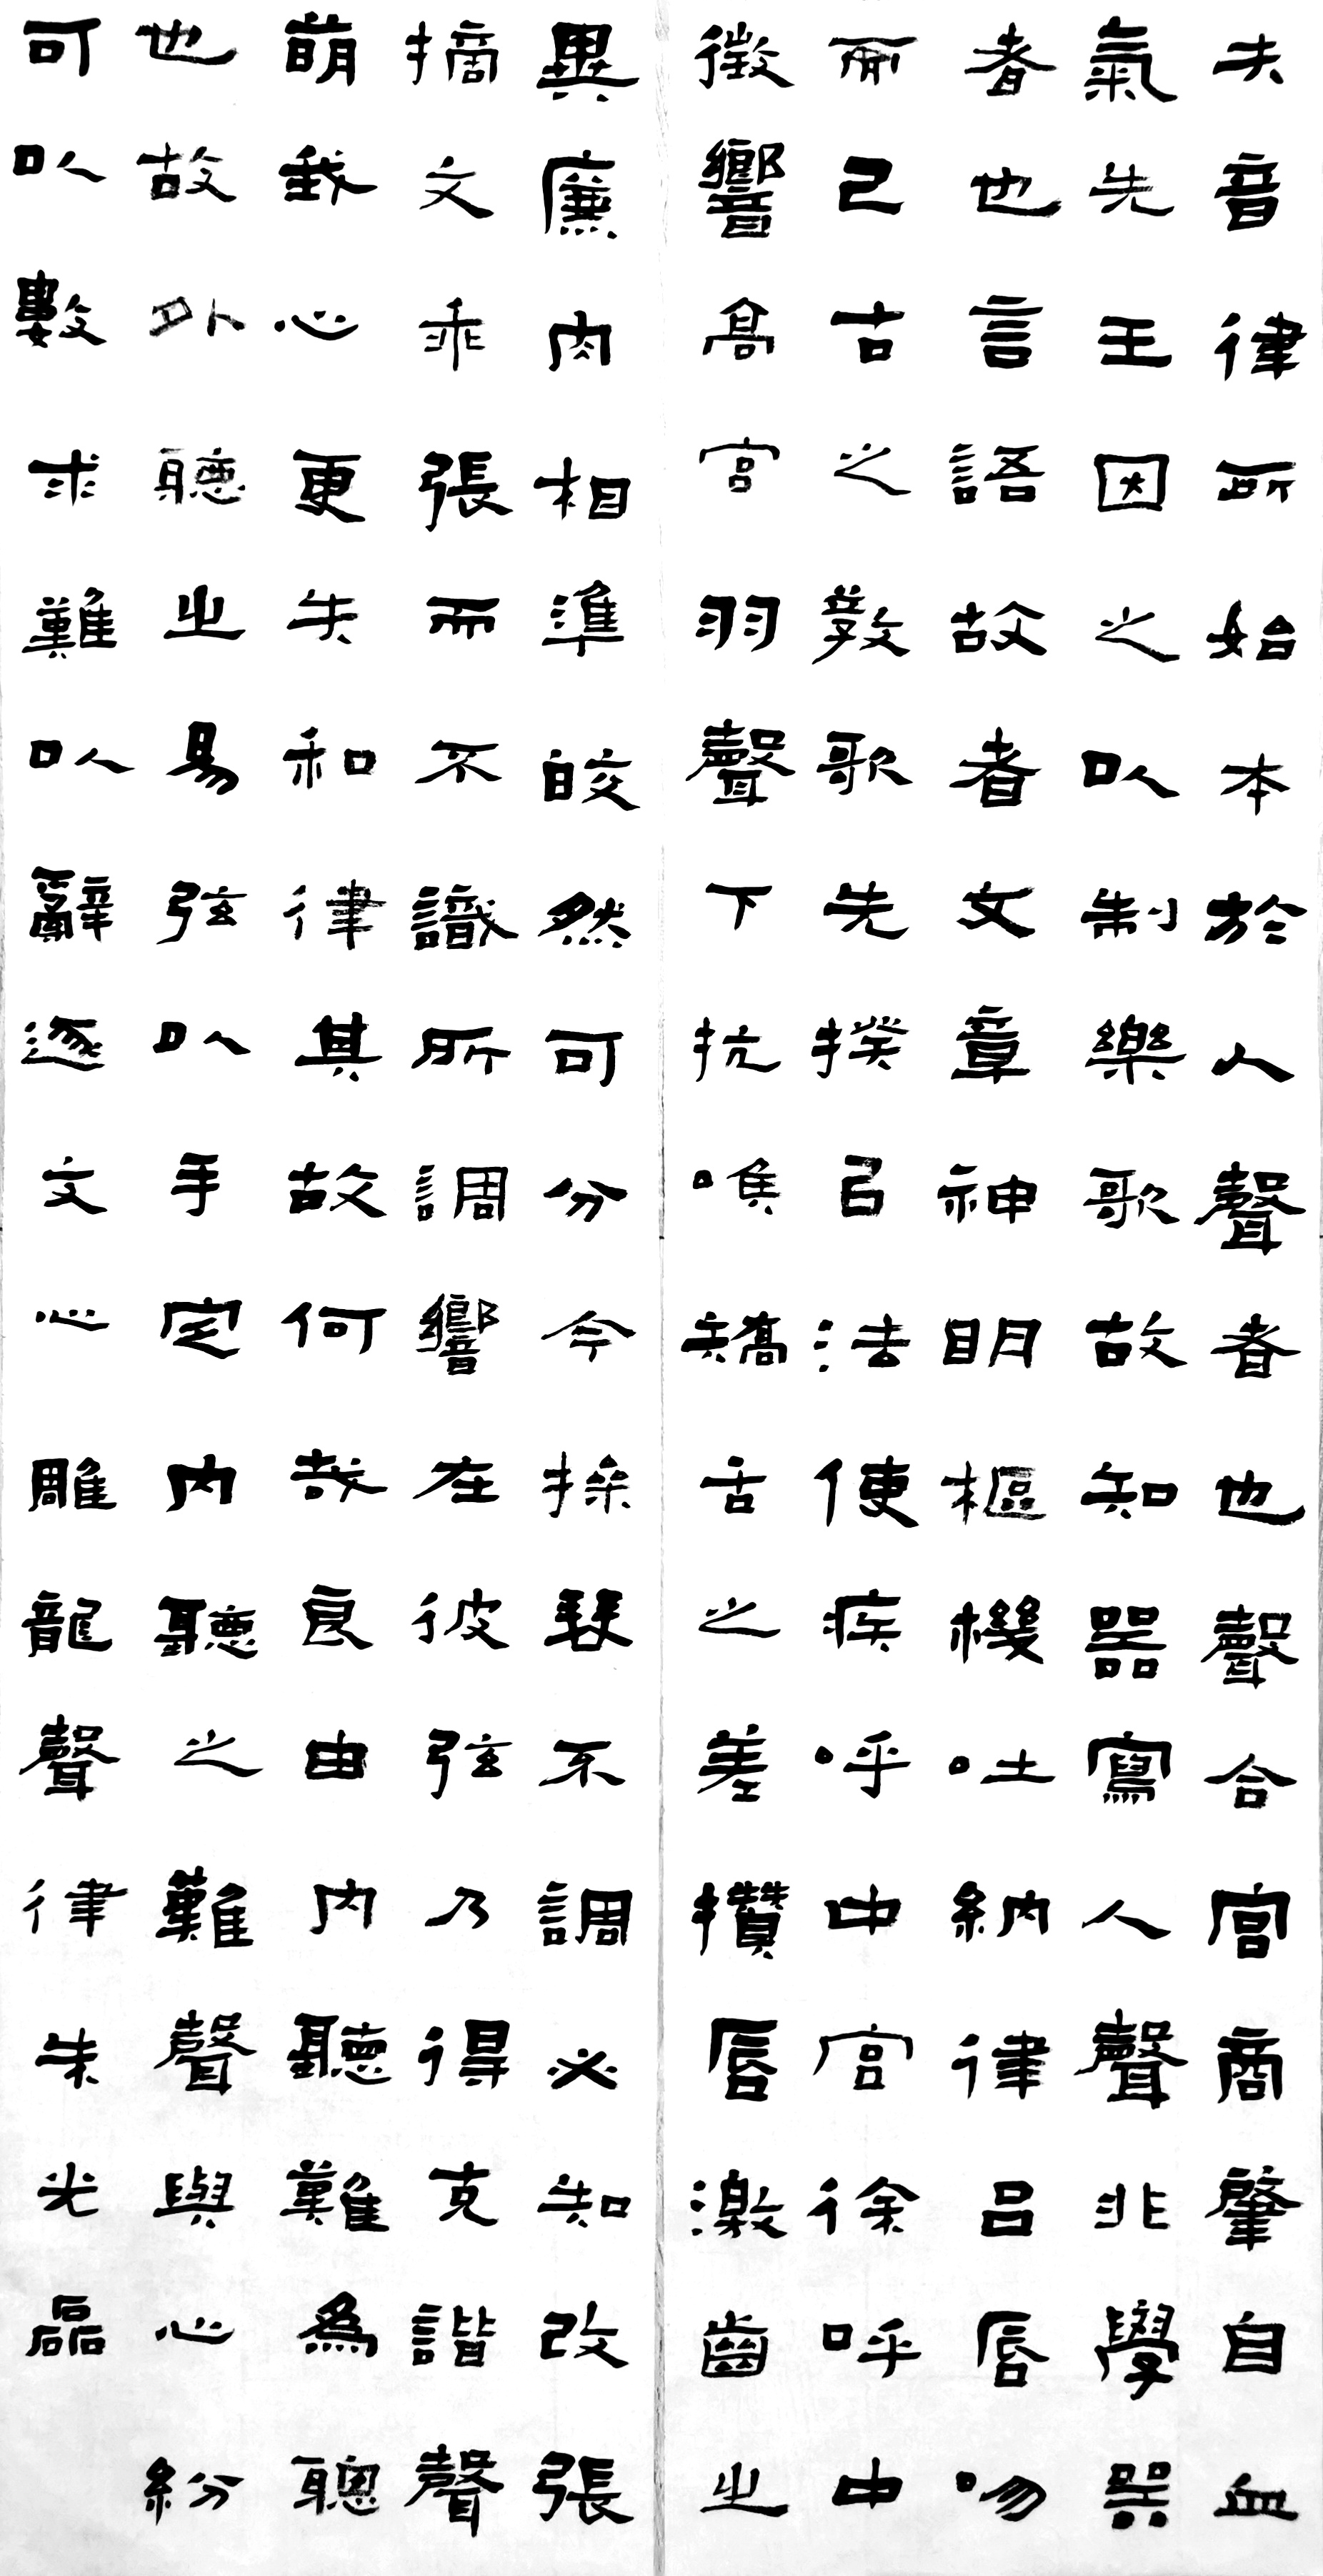 夫音律所始本於人聲者也聲合宮商肇自血
氣先王因之㕥制樂歌故知器寫人聲聲非學器
者也言語故者文章神明樞機吐納律呂唇吻
而已古之教歌先揆㠯法使疾呼中宮徐呼中
徵響高宮羽聲下抗喉矯舌之差攢唇激齒之
異廉肉相準皎然可分今操琴不調必知改張
摘文乖張而不識所調響在彼弦乃得克諧聲
萌我心更失和律其故何哉良由內聽難為聰
也故外聽之易弦㕥手定內聽之難聲與心紛
可㕥數求難㕥辭逐文心雕龍聲律朱光磊